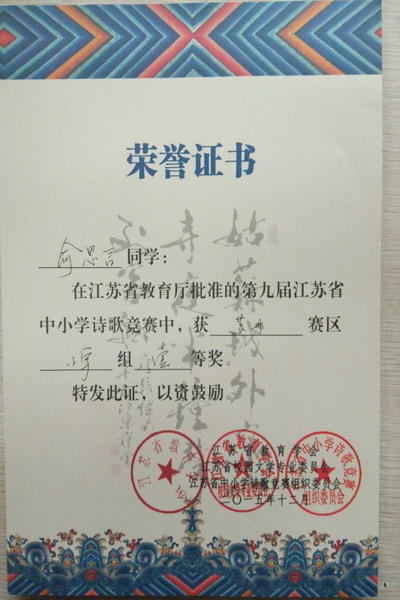 荣誉证书
俞思言同学：
在江苏省教育厅批准的第九届江苏省
中小学诗歌竞赛中，获苏州赛区
小学组壹等奖。
特发此证，以资鼓励。
江苏省教育学会
江苏省校园文学专业委员会
江苏省中小学诗歌竞赛组织委员会
二〇一五年十二月